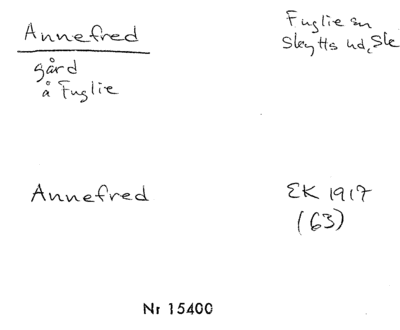 Annefred
Fuglie sn
Skytts hd, Sk
gård
å Fuglie
Annefred
EK 1917
(63)
Nr 15400